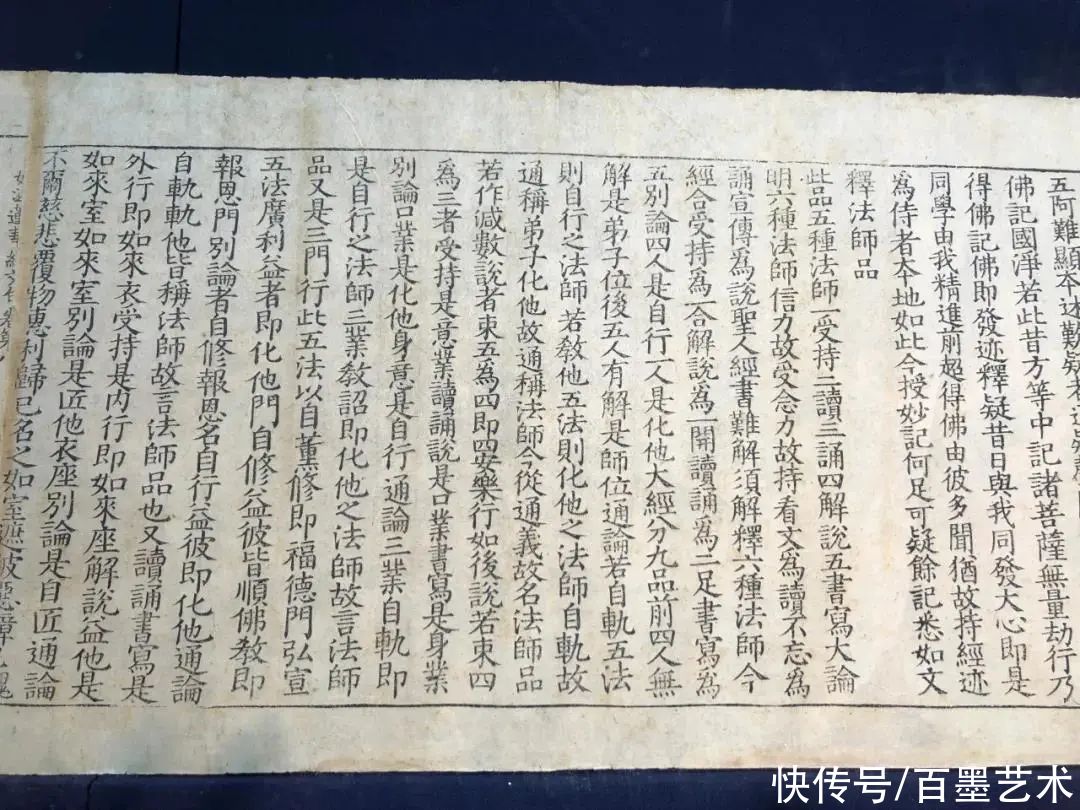 五阿難顯本述歎疑者述知
佛記國淨若此昔方等中記諸菩薩無量劫行乃
得佛記佛即發迹釋疑昔日與我同發大心即是
同學由我精進前超得佛由彼多聞猶故持經迹
爲侍者本地如此今授妙記何足可疑餘記悉如文
釋法師品
此品五種法師一受持二讀三誦四解說五書寫大論
明六種法師信力故受念力故持看文爲讀不忘爲
誦宣傳爲說聖人經書難解須解釋六種法師今
經合受持爲一合解說爲一開讀誦爲二足書寫爲
五別論四人是自行一人是化他大經分九品前四人無
解是弟子位後五人有解是師位通論若自軌五法
則自行之法師若敎他五法則化他之法師自軌故
通稱弟子化他故通稱法師今從通義故名法師品
若作減數說者束五爲四即四安樂行如後說若束四
爲三者受持是意業讀誦說是口業書寫是身業
別論口業是化他身意是自行通論三業自軌即
是自行之法師三業敎詔即化他之法師故言法師
品又是三門行此五法以自熏修即福德門弘宣
五法廣利益者即化他門自修益彼皆順佛敎即
報恩門別論者自修報恩名自行益彼即化他通論
自軌軌他皆稱法師故言法師品也又讀誦書寫是
外行即如來衣受持是內行即如來座解說益他是
如來室如來室別論是匠他衣座別論是自匠通論
不爾慈悲覆物惠利歸己名之如室遮彼惡障己愧
妙法蓮華經文句卷第八
快传号/百墨艺术